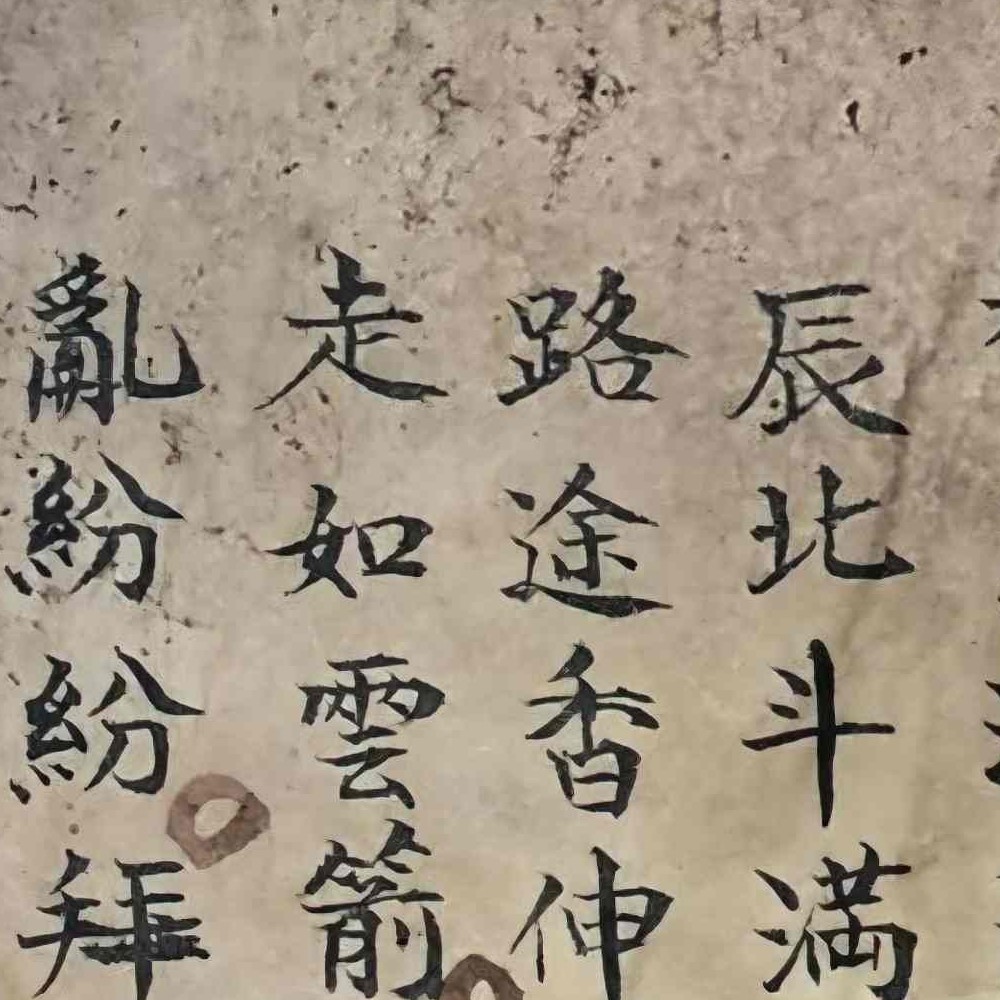 辰北斗满
路途香伸
走如雲箭
亂紛紛拜